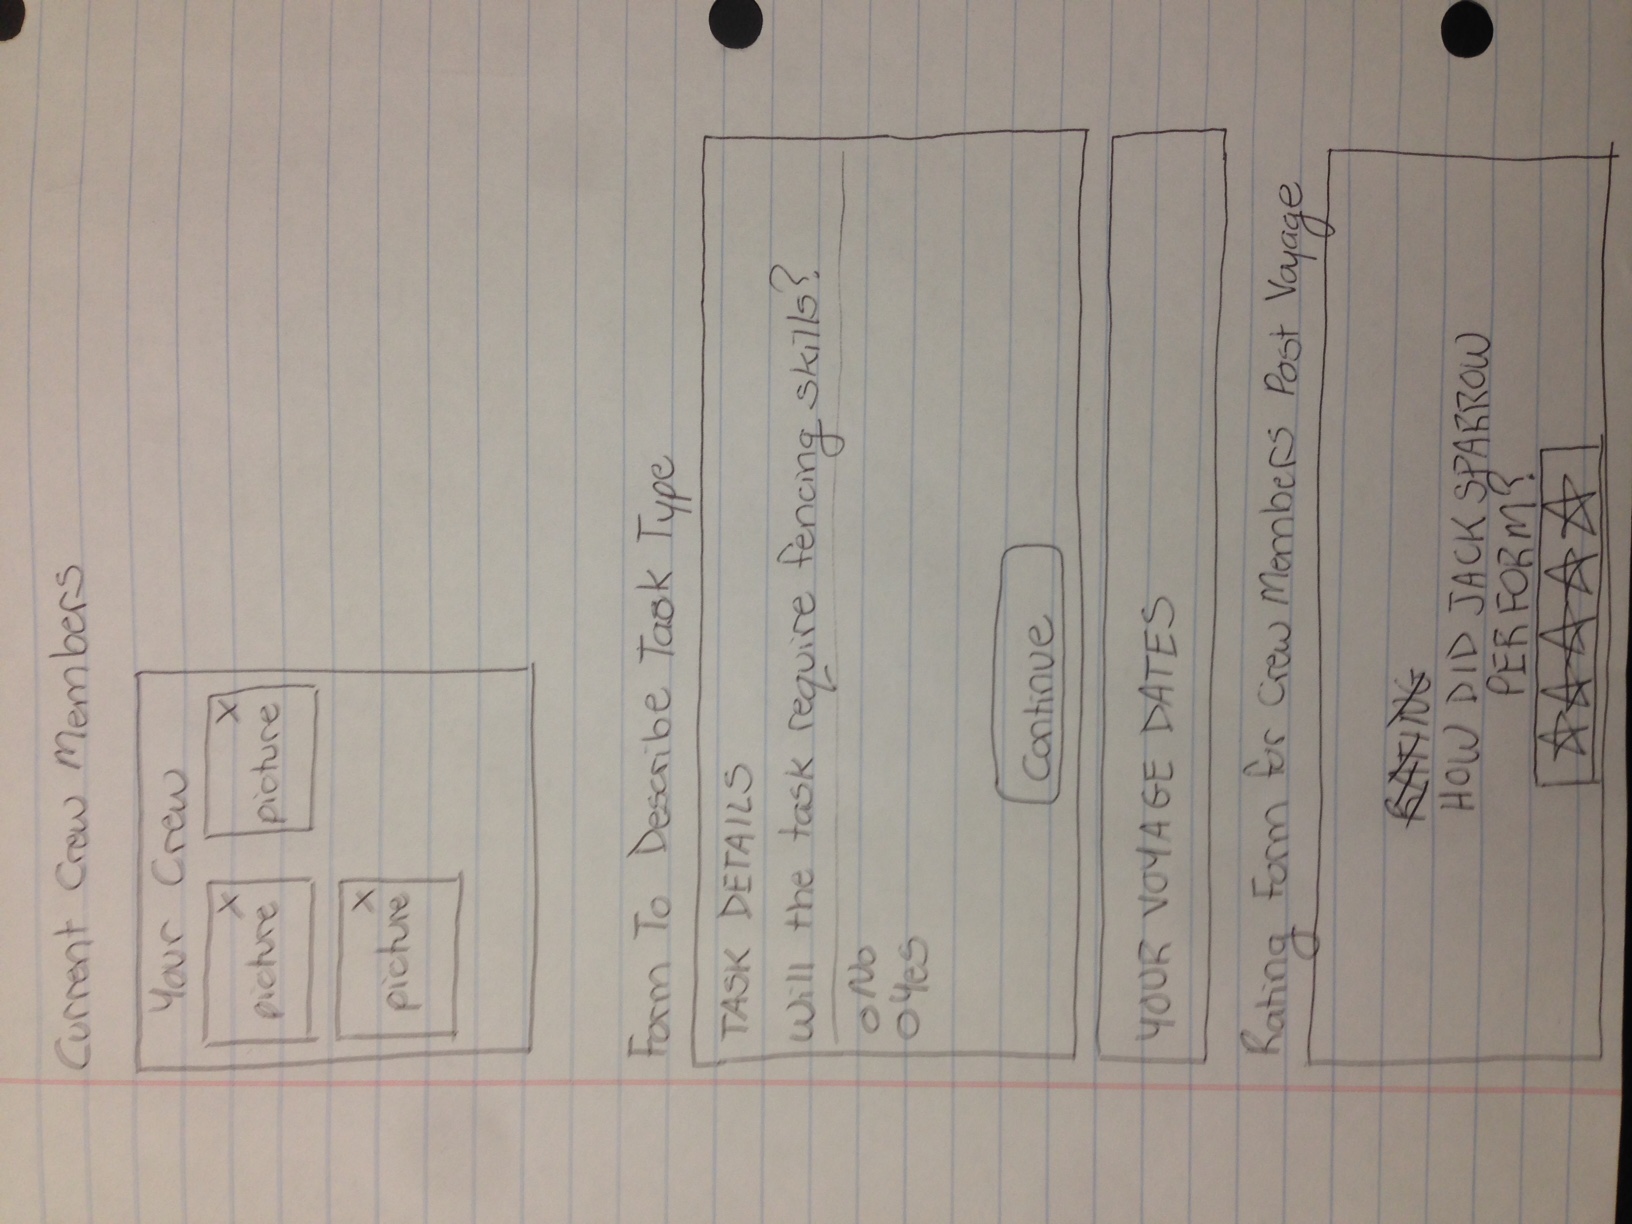 Current Crew Members
Your Crew
X X
picture picture
X
picture
Form To Describe Task Type
TASK DETAILS
Will the task require fencing skills?
No
Yes
Continue
YOUR VOYAGE DATES
Rating Form for Crew Members Post Voyage
RATING
HOW DID JACK SPARROW
PERFORM?